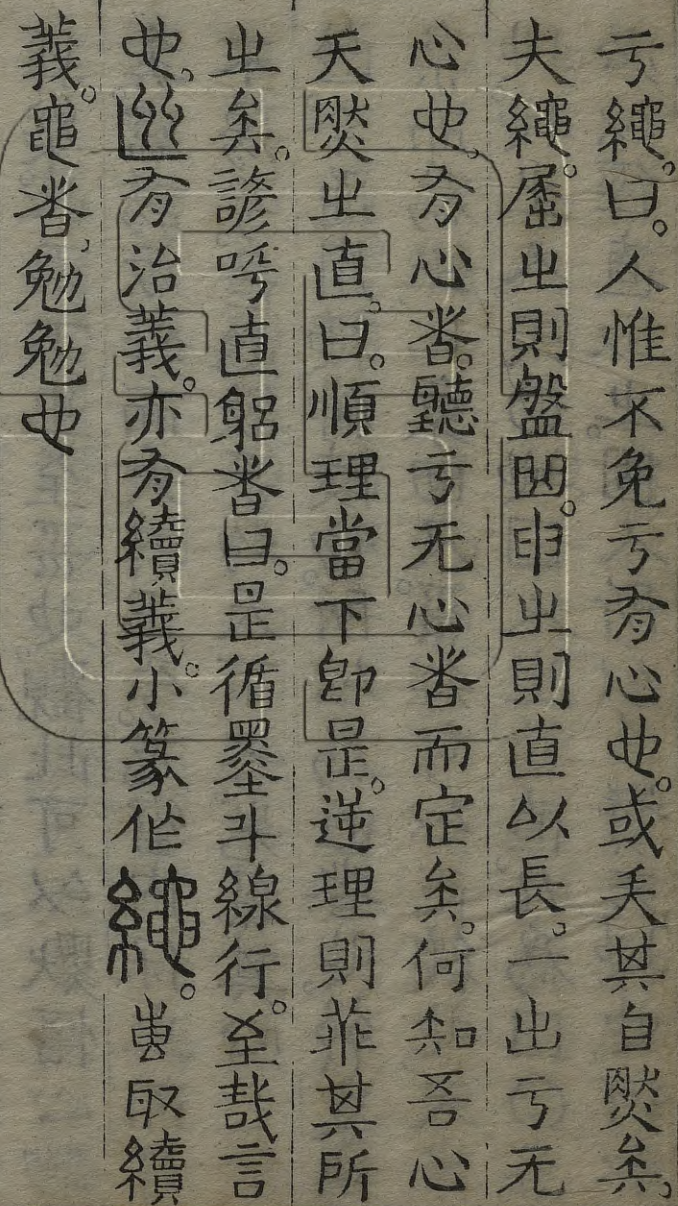 亏繩。曰。人惟不免亏有心也。或失其自然矣。
夫繩。屈之則盤。申之則直以長。一出亏无
心也。有心者。聽亏无心者而定矣。何知吾心
天然之直。曰。順理當下卽是。逆理則非其所
之矣。諺呼直躳者曰。是循墨斗線行。至哉言
也。有治義。亦有續義。小篆作繩。叀取續
義。黽者、勉勉也